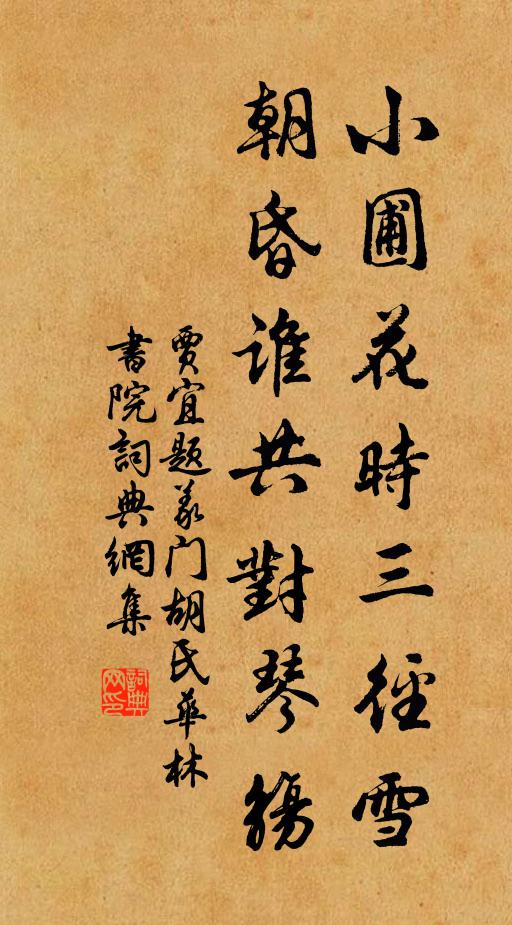 小圃花時三徑雪
朝昏誰共對琴觴
賈宜題義门胡氏華林
書院詞典網集
詞典網印